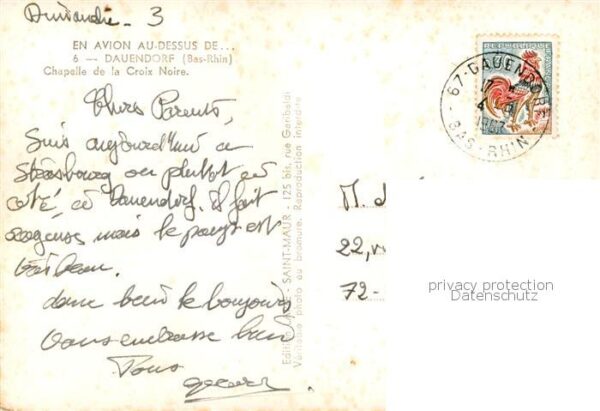 Dimanche - 3
EN AVION AU-DESSUS DE...
6 — DAUENDORF (Bas-Rhin)
Chapelle de la Croix Noire.
Chers Parents,
Suis aujourd'hui a
Strasbourg ou plutot au
coté, a Dauendorf. Il fait
mais le pays est
beau.
donc bien le bonjour
Vous embrasse bien
Tous
67-DAUENDORF
17
4
196
BAS-RHIN
SAINT-MAUR - 125 bis, rue Garibaldi
Véritable photo au bromure. Reproduction interdite
M.
22,
72-
privacy protection
Datenschutz